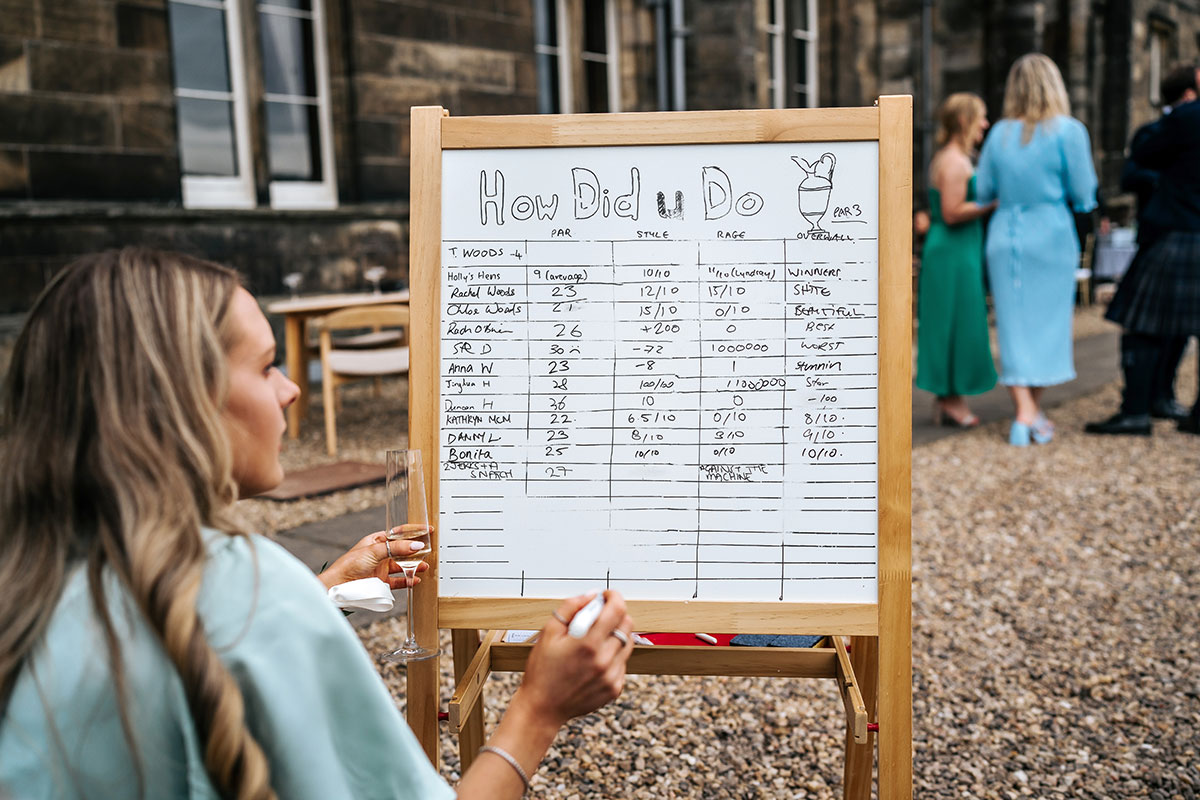 How Did u Do
PAR 3
PAR STYLE RAGE OVERALL
T. WOODS -4
Holly's Hens 9 (average) 10/10 11/10 (Lyndsay) WINNERS.
Rachel Woods 23 12/10 15/10 SHITE
Chloe Woods 27 15/10 0/10 BEAUTIFUL
Rach O'Brien 26 +200 0 BEST
SIR D 30 -72 1000000 WORST
Anna W 23 -8 1 Stunnin
H 28 100/60 11000000 Star
Duncan H 36 10 0 -100
KATHRYN MCM 22. 6.5/10 0/10 8/10.
DANNY L 23 8/10 3/10 9/10.
Bonita 25 10/10 0/10 10/10.
2 JERKS + A
SNATCH 27 AGAINST THE
MACHINE